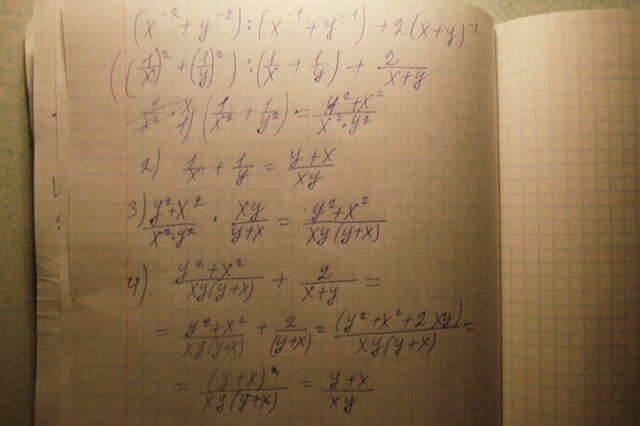 (x⁻² + y⁻²) : (x⁻¹ + y⁻¹) + 2(x+y)⁻¹
((1/x)² + (1/y)²) : (1/x + 1/y) + 2/(x+y)
1) (1/x² + 1/y²) = (y²+x²)/(x²·y²)
2). 1/x + 1/y = (y+x)/(xy)
3) (y²+x²)/(x²·y²) · xy/(y+x) = (y²+x²)/(xy(y+x))
4). (y²+x²)/(xy(y+x)) + 2/(x+y) =
= (y²+x²)/(xy(y+x)) + 2/(y+x) = (y²+x²+2xy)/(xy(y+x)) =
= (y+x)²/(xy(y+x)) = (y+x)/(xy)